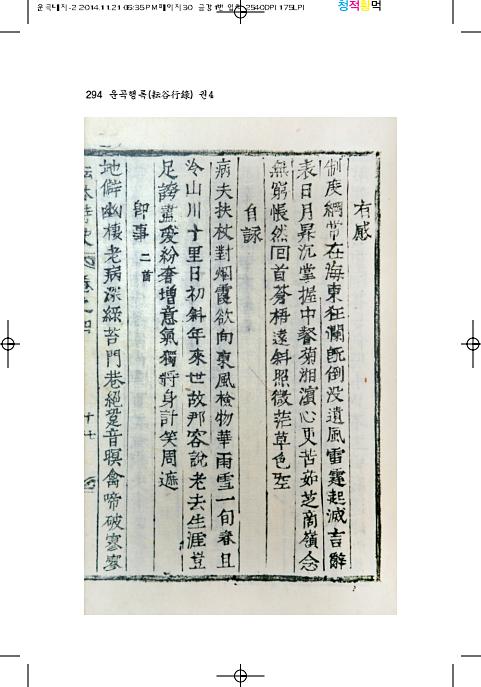 운곡내지-2 2014.11.21 05:35 PM 페이지30
2540DPI 175LPI
청적황먹
294 운곡행록(耘谷行錄) 권4
有感
制度綱常在海東狂瀾旣倒没遺風雷霆起滅吉辭
表日月昇沉掌握中餐菊湘濱心更苦茹芝商嶺念
無窮悵然回首蒼梧遠斜照微茫草色空
自詠
病夫扶杖對烟霞欲向東風檢物華雨雪一旬春且
冷山川十里日初斜年來世故那容說老去生涯豈
足誇驚愛紛奢增意氣獨將身計笑周遮
卽事 二首
地僻幽棲老病深綠苔門巷絕跫音暝禽啼破寥寥